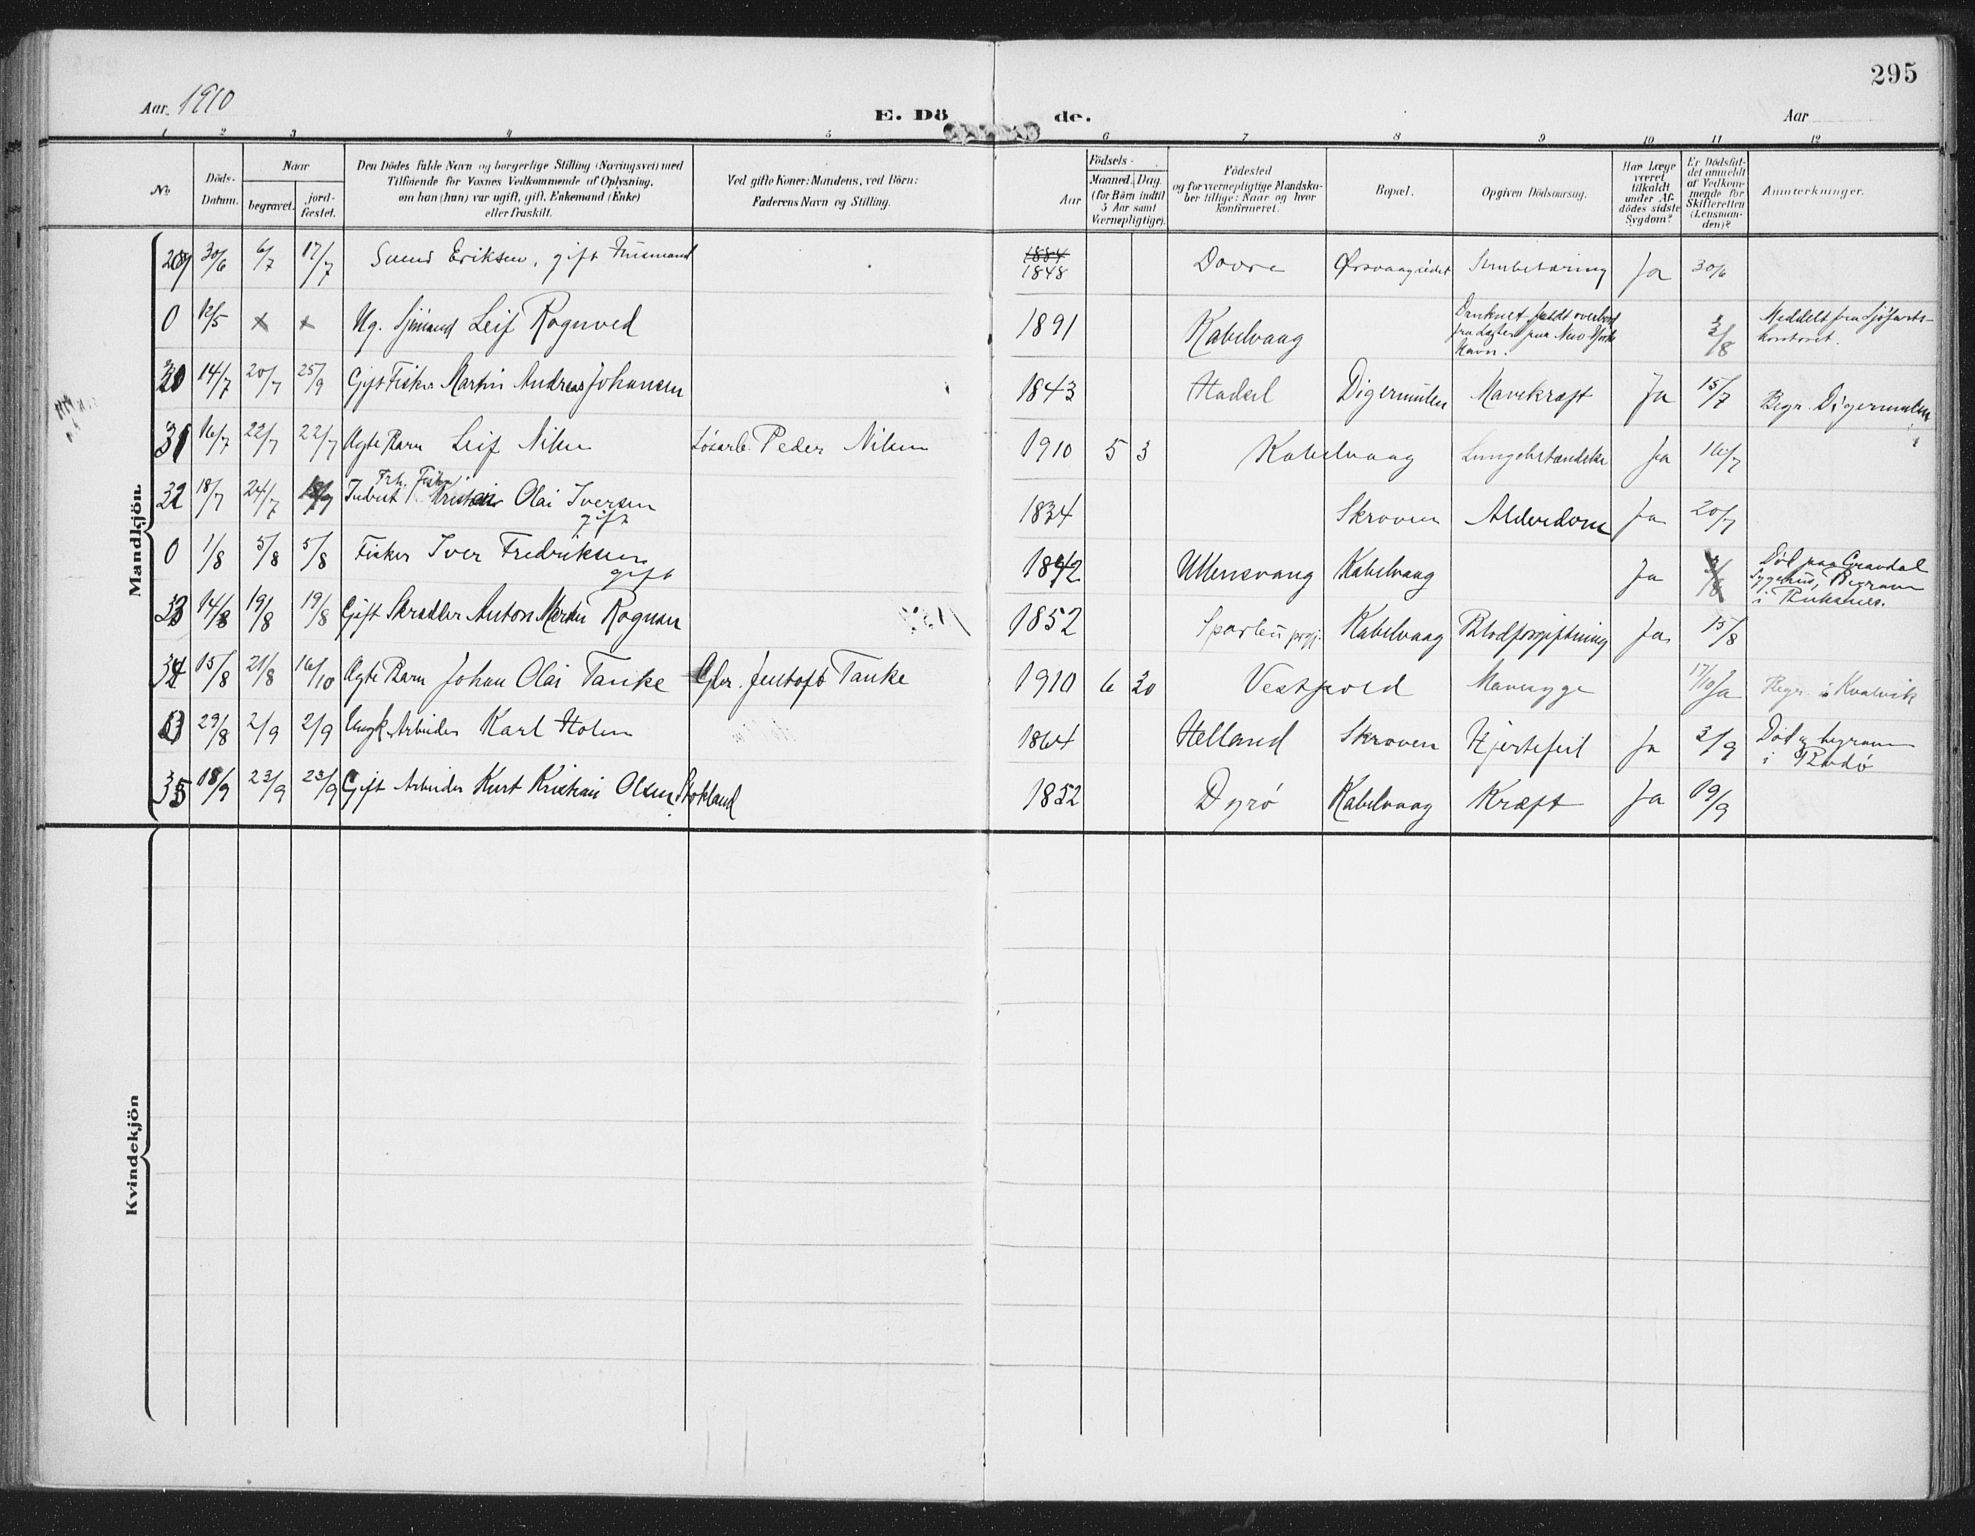 295
Aar 1910
E. Dö de.
Aar
1 2 3 4 5 6 7 8 9 10 11 12
No
Döds-Datum.
Naar
begravet.
jord-fæstet.
Den Dödes fulde Navn og borgerlige Stilling (Næringsvei) med
Tilföiende for Voxnes Vedkommende af Oplysning,
om han (hun) var ugift, gift, Enkemand (Enke)
eller fraskilt.
Ved gifte Koner: Mandens, ved Börn:
Faderens Navn og Stilling.
Födsels-
Aar
Maaned. Dag
(for Börn indtil
5 Aar samt
Værnepligtige).
Födested
og for værnepligtige Mandska-
ber tillige: Naar og hvor
konfirmeret.
Bopæl.
Opgiven Dödsaarsag.
Har Læge
været
tilkaldt
under Af-
dödes sidste
Sygdom?
Er Dödsfal-
det anmeldt
af Vedkom-
mende for
Skifteretten
(Lensman-
den)?
Anmerkninger.
Mandkjön.
29 30/6 6/7 17/7 Svend Eriksen, gift Husmand 1884 1848 Dovre Ørsvaag Ja 30/6
0 12/5 x x Ug. Sjömand Leif Rognved 1891 Kabelvaag Druknet faldt overbord
Havn. 2/8 Meddelt fra Sjöfarts-
kontoret.
30 14/7 20/7 25/9 Gift Fisker Martin Andreas Johansen 1843 Hadsel Digermulen Mavekræft Ja 15/7 Begr. Digermulen
31 16/7 22/7 22/7 Ægte Barn Leif Nilsen Løsarb. Peder Nilsen 1910 5 3 Kabelvaag Lungebetændelse Ja 16/7
32 18/7 24/7 Fisker Olai Iversen
gift 1834 Skroven Alderdom Ja 20/7
0 1/8 5/8 5/8 Fisker Iver Fredriksen
gift 1842 Ullensvang Kabelvaag Ja Död paa Gravdal
Sygehus, Begravn
i Buksnes.
33 14/8 19/8 19/8 Gift Skrædder Anton Martin Rognan 1852 Sparbu prgj. Kabelvaag Blodforgiftning Ja 15/8
34 15/8 21/8 16/10 Ægte Barn Johan Olai Tanke Jentoft Tanke 1910 6 20 Vestfjord Mavesyge 17/10 Ja Begr. i Kvalvik
0 29/8 2/9 2/9 Arbeider Karl Holm 1864 Helland Skroven Hjertefeil Ja 3/9 Död og begraven
i Bodö
35 18/9 23/9 23/9 Gift Arbeider Kurt Kristian Olsen Stokland 1852 Dyrö Kabelvaag Kræft Ja 19/9
Kvindekjön